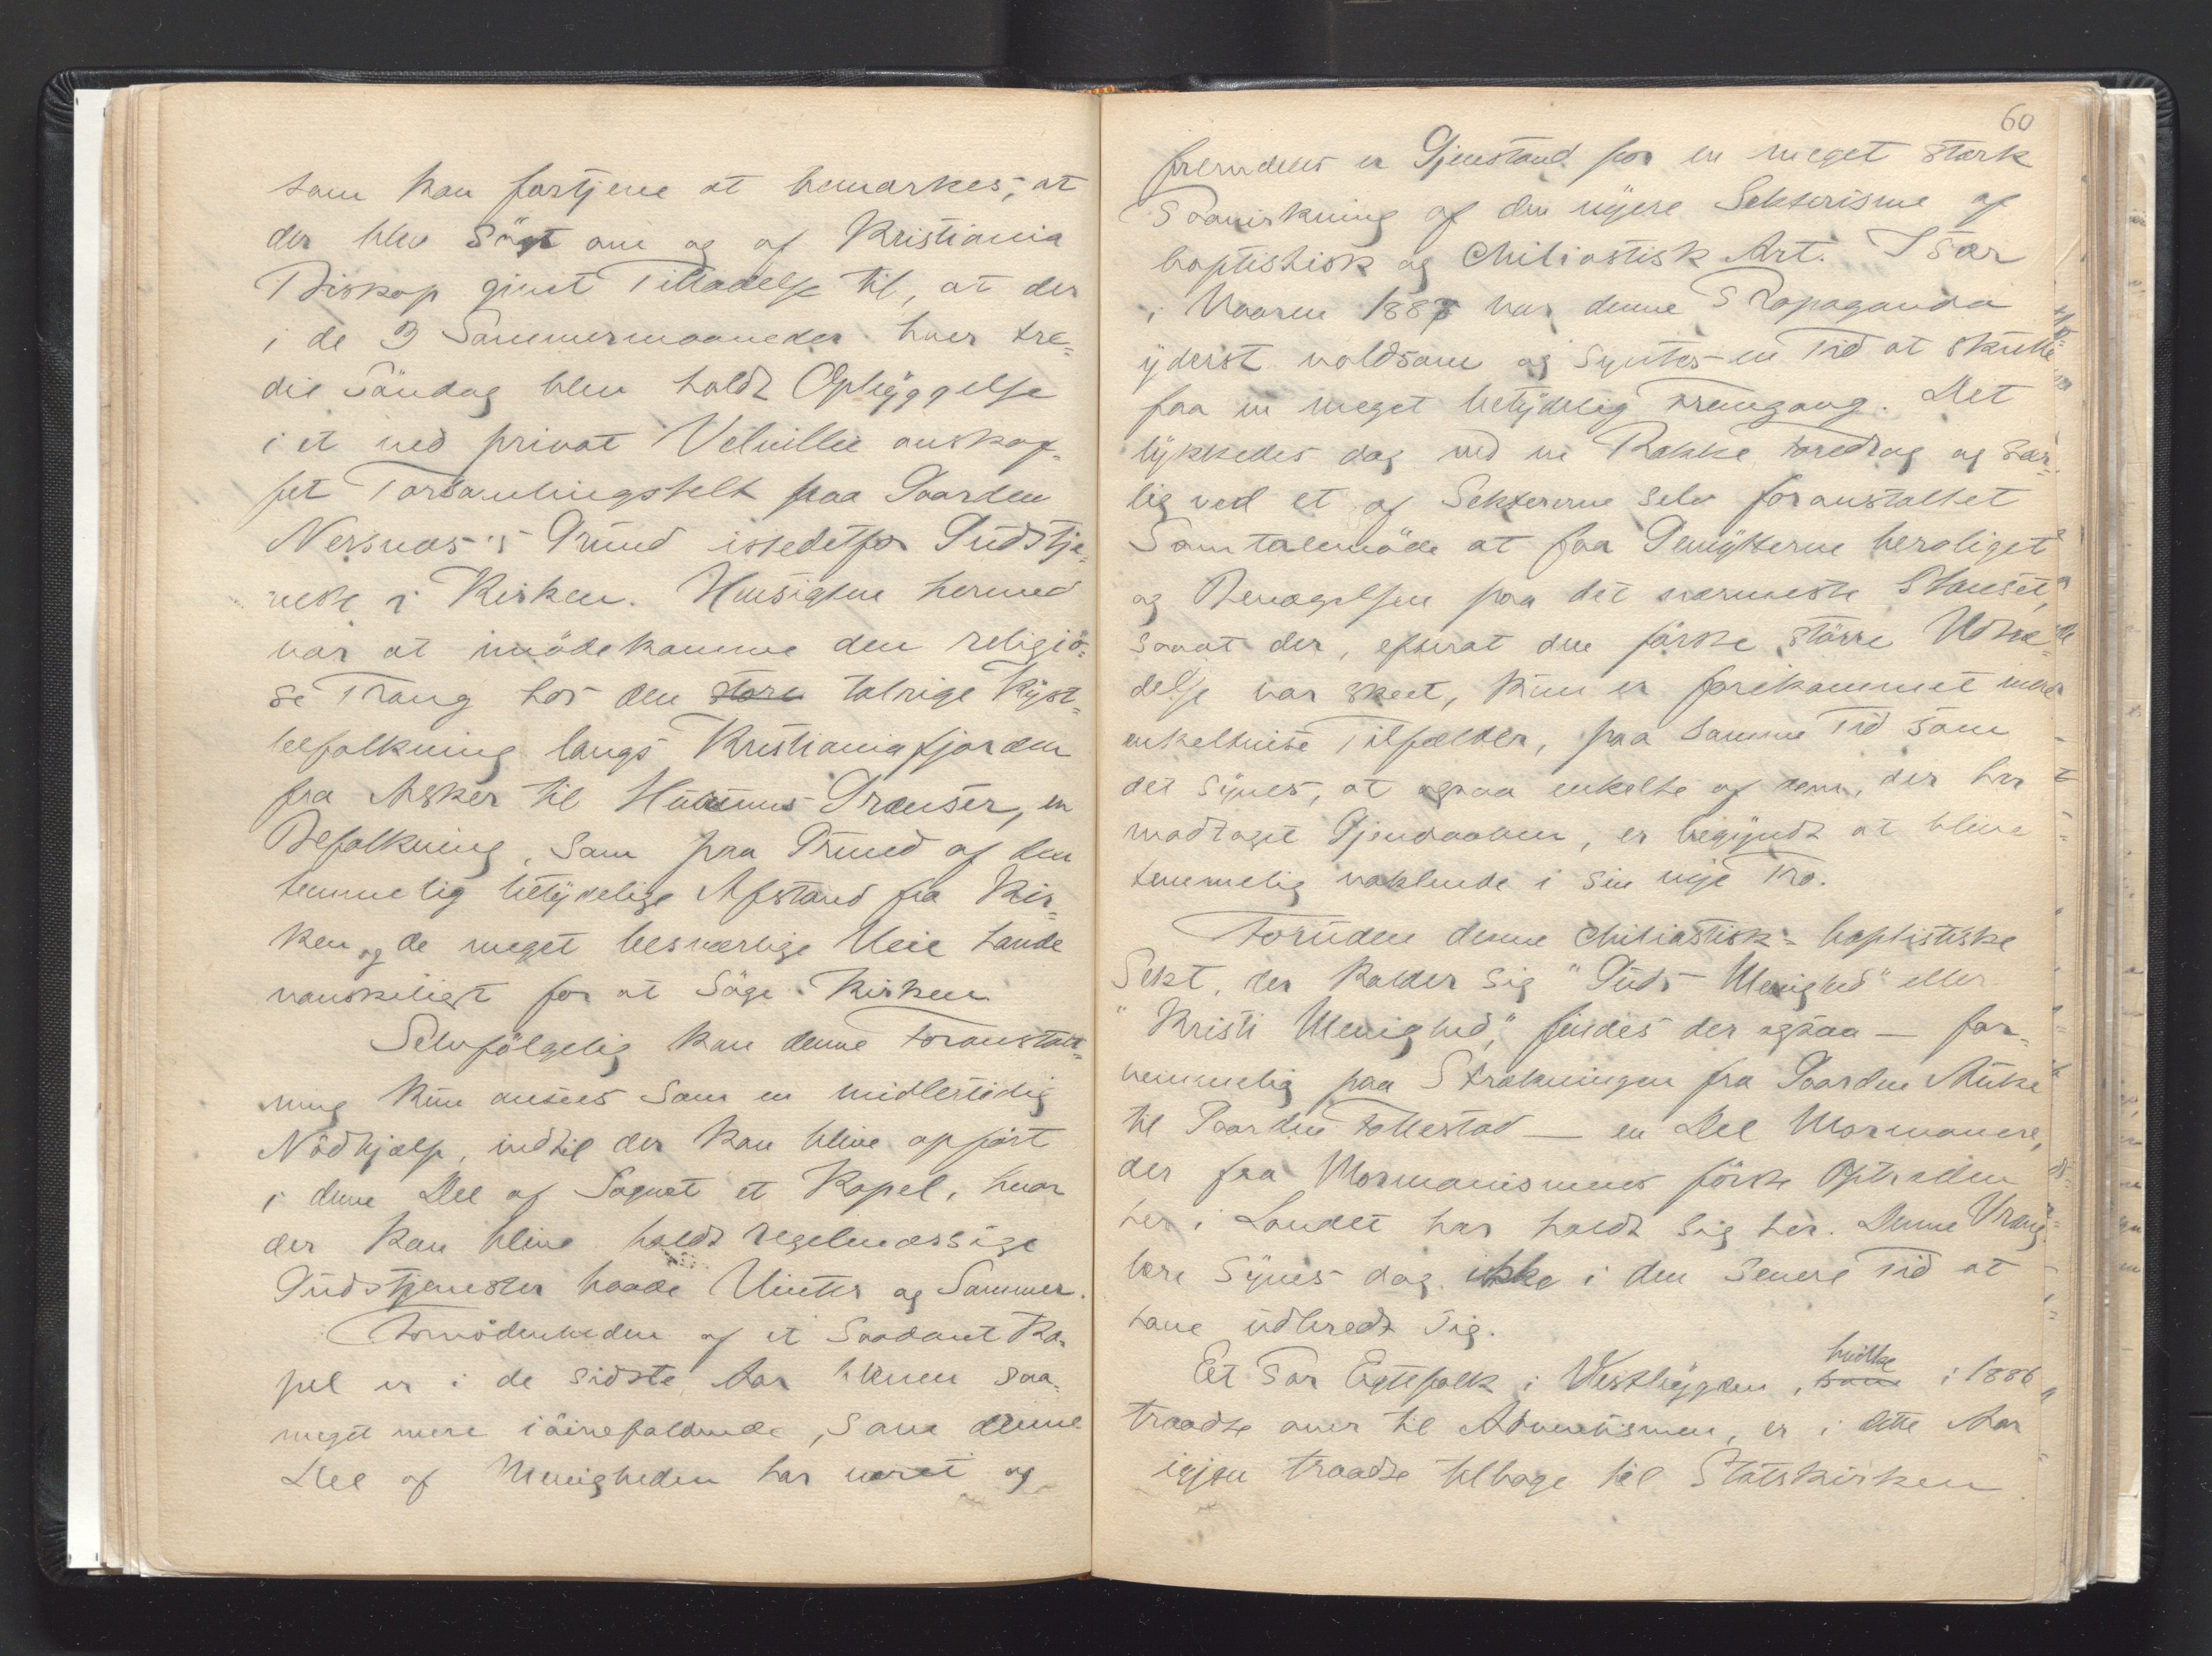 som kan fortjene at bemærkes, at
der blev Søgt om og af Kristiania
Biskop givet Tilladelse til, at der
i de 3 Sommermaaneder hver tre=
die Søndag blev holdt Opbyggelse
i et ved privat Velvillie anskaf=
fet Forsamlingstelt paa Gaarden
Nersnæs's Grund istedetfor Gudstje=
neste i Kirken. Hensigten hermed
var at imødekomme den religiø=
se Trang hos den store talrige Kyst=
befolkning langs Kristianiafjorden
fra Asker til Hurums Grænser, en
Befolkning, som paa Grund af den
temmelig betydelige Afstand fra Kir=
ken og de meget besværlige Veie havde
vanskeligt for at Søge Kirken
Selvfølgelig kan denne Foranstalt=
ning kun ansees som en midlertidig
Nødhjælp, indtil der kan blive opført
i denne Del af Sognet et Kapel, hvor
der kan blive holdt regelmæssige
Gudstjenester baade Vinter og Sommer.
Fornødenheden af et Saadant Ka=
pel er i de sidste Aar bleven saa
meget mere iøinefaldende, som denne
Del af Menigheden har været og
60
fremdeles er Gjenstand for en meget stærk
Paavirkning af den nyere Sekterisme af
baptistisk og chiliastisk Art. Især
i Vaaren 1887 var denne Propaganda
yderst voldsom og syntes en Tid at skulle
faa en meget betydelig Fremgang. Det
lykkedes dog ved en Række Foredrag og sær=
lig ved et af Sektererne selv foranstaltet
Samtalemøde at faa Gemytterne beroliget
og Bevægelsen paa det nærmeste Standset,
saaat der, efterat den første større Udtræ=
delse var skeet, kun er forekommet mere
enkeltvise Tilfælder, paa samme Tid som
det synes, at ogsaa enkelte af dem, der har
modtaget Gjendaaben, er begyndt at blive
temmelig vaklende i sin nye Tro.
Foruden denne chiliastisk=baptistiske
Sekt, der kalder sig "Guds Menighed" eller
"Kristi Menighed", findes der ogsaa — for=
nemmelig paa Strækningen fra Gaarden
til Gaarden Follestad — en Del Mormonere,
der fra Mormonismens første Optræden
her i Landet har holdt sig her. Denne Vrang
lære Synes dog ikke i den Senere Tid at
have udbredt sig.
Et Par Egtefolk i Vestbygden, som hvilke i 1886
traadte over til Adventismen, er i dette Aar
igjen traadte tilbage til Statskirken